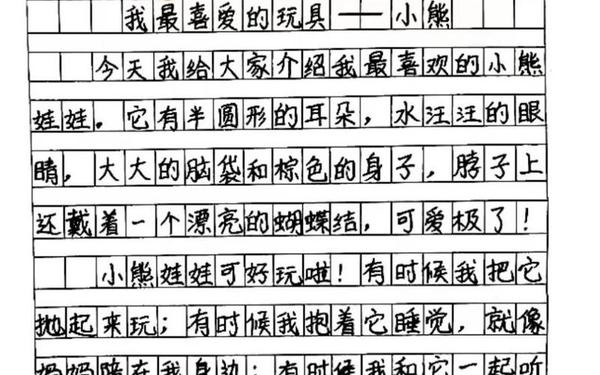 我最喜爱的玩具——小熊
今天我给大家介绍我最喜欢的小熊
娃娃。它有半圆形的耳朵，水汪汪的眼
睛，大大的脑袋和棕色的身子，脖子上
还戴着一个漂亮的蝴蝶结，可爱极了！
小熊娃娃可好玩啦！有时候我把它
抛起来玩；有时候我抱着它睡觉，就像
妈妈陪在我身边；有时候我和它一起听